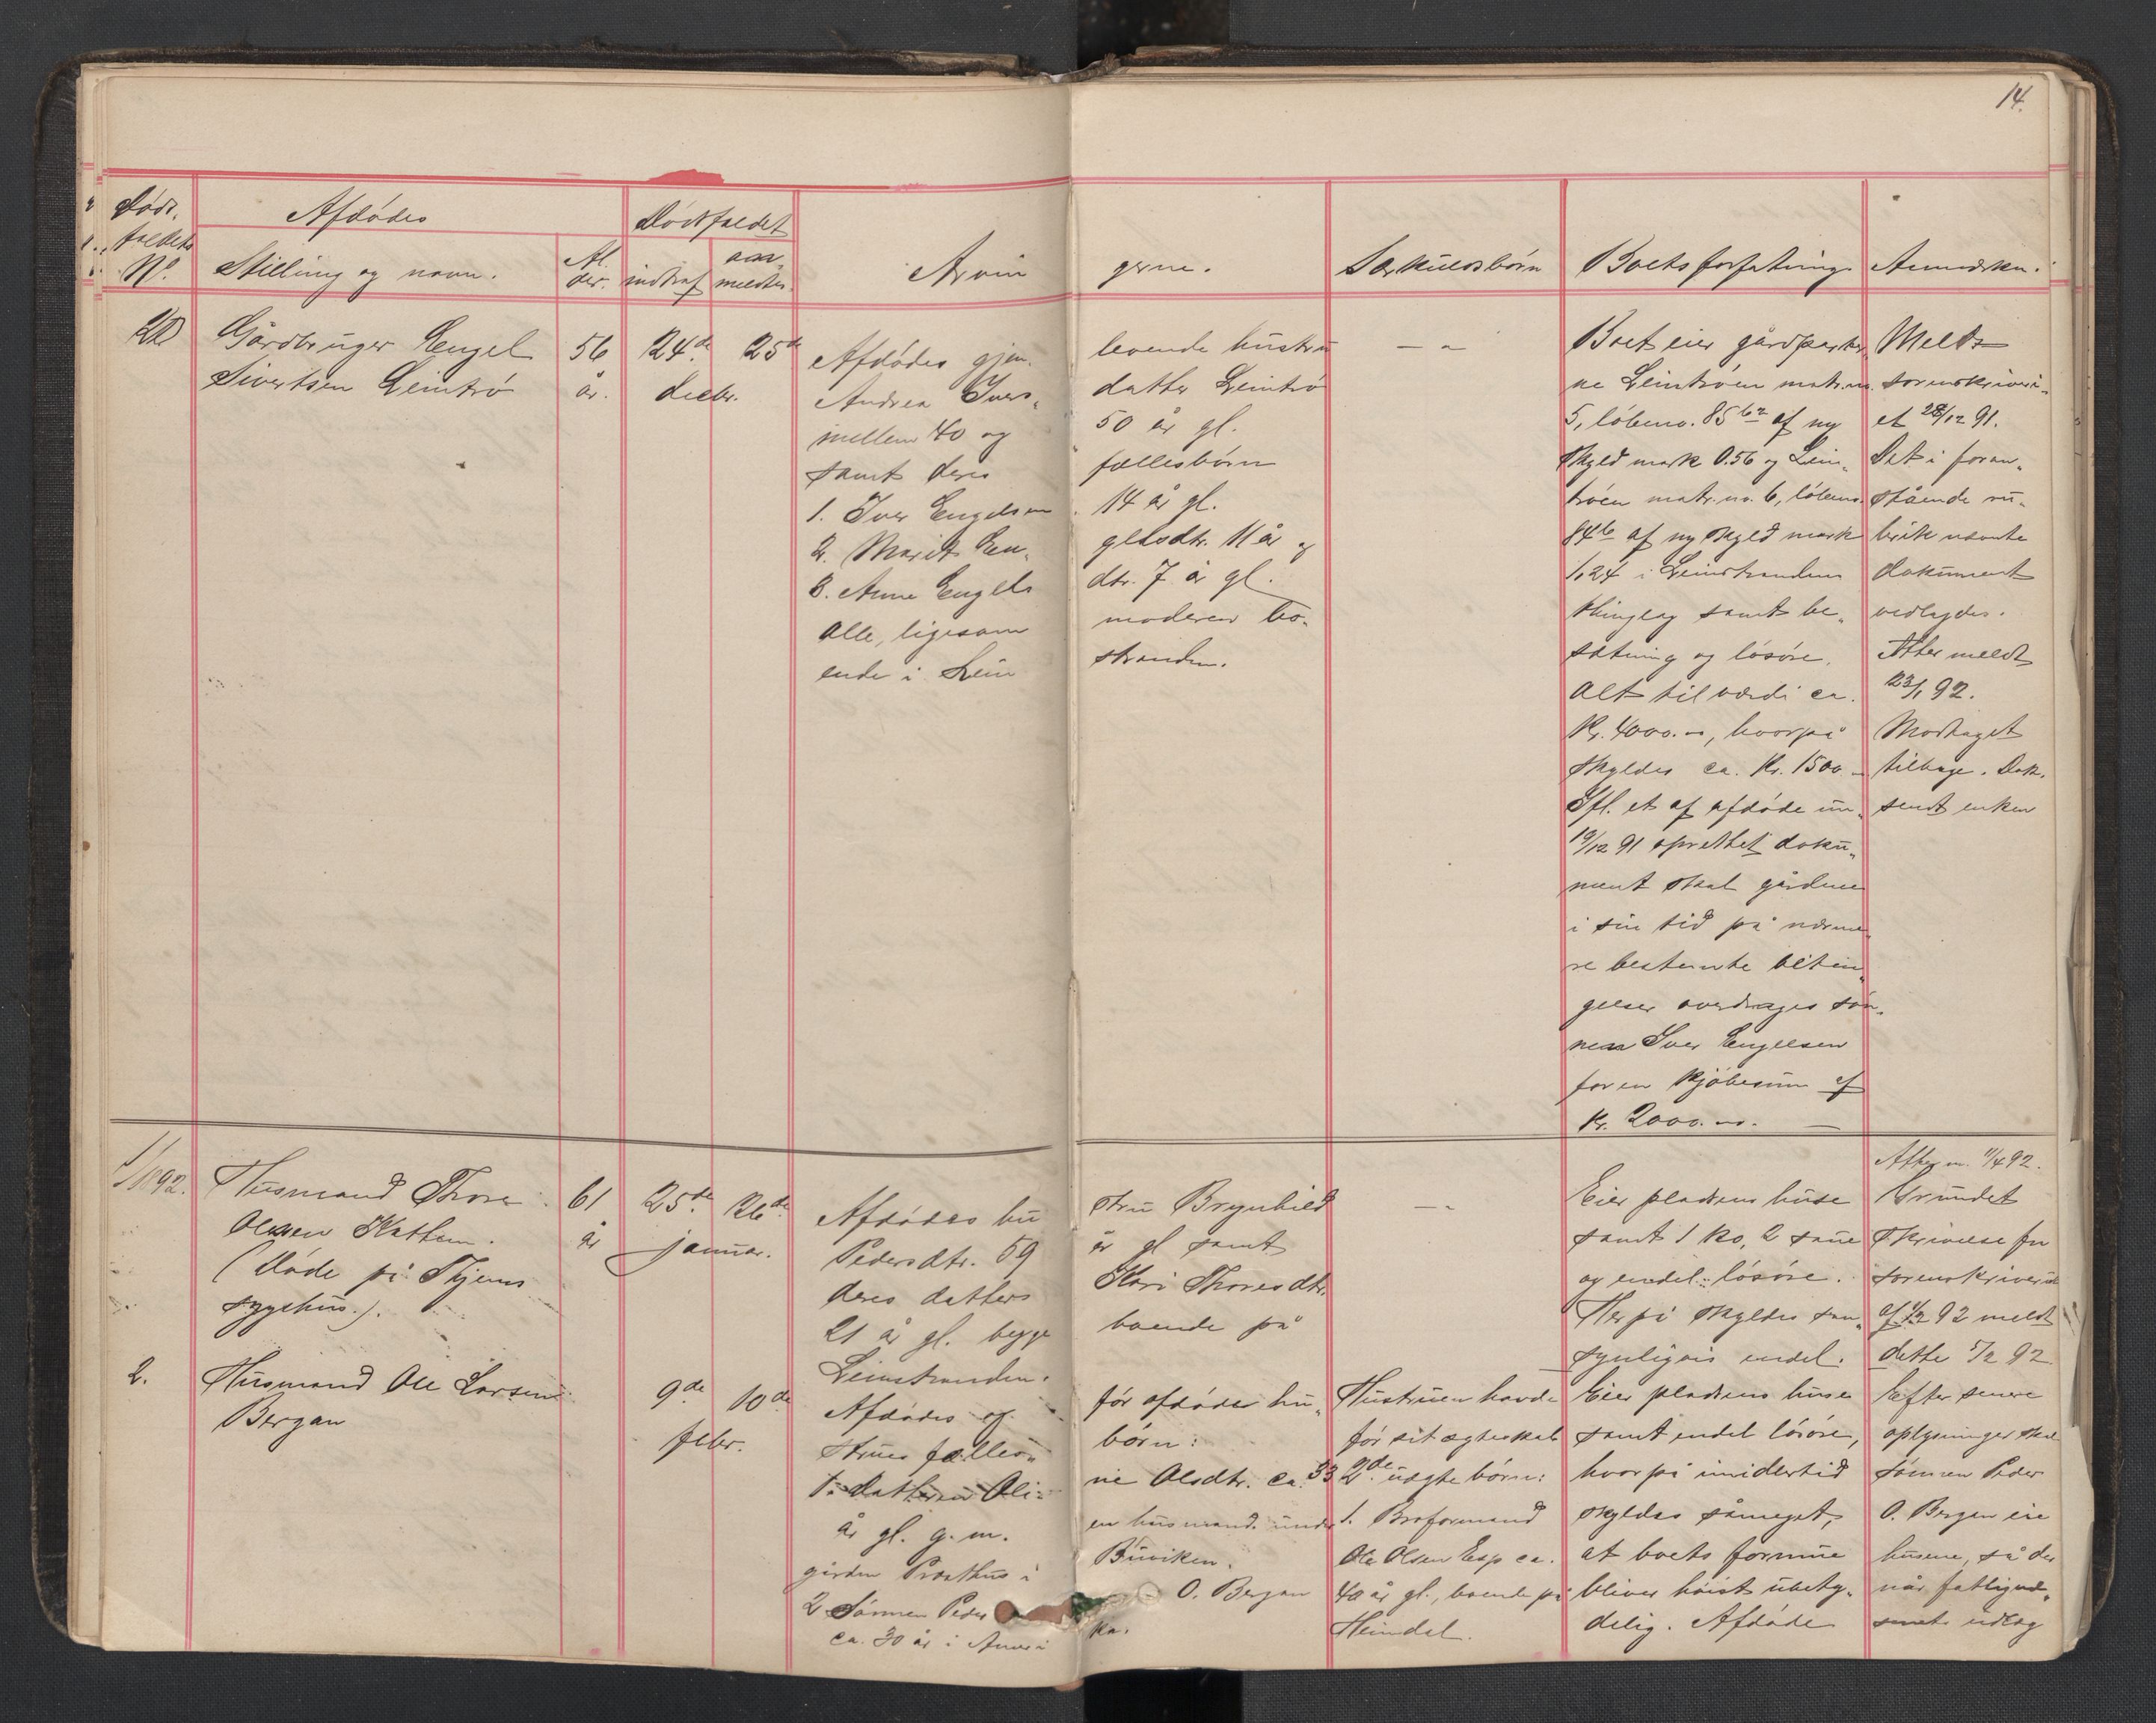 14.
Döds-
faldets
No.
Afdödes
Stilling og navn.
Al-
der.
Dödsfaldet
indtraf
an-
meldtes.
Arvin
gerne.
Særkuldsbörn
Boets forfatning
Anmærkn.
20
Gårdbruger Engel
Sivertsen Leintrö
56
år.
24de
25de
decbr.
Afdödes gjen-
Andrea Ivers-
mellem 40 og
samt deres
1. Iver Engelsen
2. Marit En-
3. Anne Engels
Alle, ligesom
ende i Lein
levende hustru
datter Leintrö
50 år gl.
fællesbörn
14 år gl.
gelsdtr. 11 år og
dtr. 7 år gl.
moderen bo-
stranden.
— " —
Boet eier gårdparter-
ne Leintröen matr. no.
5, löbeno. 85 b2 af ny
skyld mark 0.56 og Lein-
tröen matr. no. 6, löbeno.
84 b af ny skyld mark
1,24 i Leinstrandens
thinglag samt be-
sætning og lösöre.
Alt til værdi ca.
Kr. 4000.00, hvorpå
skyldes ca. Kr. 1500.—
Ifl. et af afdöde un-
19/12 91 oprettet doku-
ment skal gårdene
i sin tid på nærme-
re bestemte betin-
gelser overdrages søn-
nen Iver Engelsen
for en kjöbesum af
Kr. 2000.00. —
Meldt
sorenskriveri-
et 28/12 91.
Det i foran-
stående ru-
brik nævnte
dokument
vedlagdes.
Atter meldt
23/1 92.
Modtaget
tilbage. Dok.
sendt enken
1/1892.
Husmand Thore
Olsen Kattem.
(Döde på Stjems
sygehus.).
61
år
25de
26de
januar.
Afdödes hu
Pedersdtr. 59
deres datter
21 år gl. begge
Leinstranden.
stru Brynhild
år gl samt
Kari Thoresdtr.
boende på
— " —
Eier pladsens huse
samt 1 ko, 2 sauer
og endel lösöre.
Herpå skyldes san-
synligvis endel.
Atter m. 11/4 92.
Grundet
skrivelse fra
sorenskriveriet
af 1/2 92 meldt
dette 5/2 92
2.
Husmand Ole Larsen
Bergan
9de
10de
febr.
Afdödes og
strues fælles-
1. datteren Oli-
år gl. g. m.
gården Præsthus i
2 Sönnen Peder
ca. 30 år i Ameri
för afdöde hu-
börn:
ne Olsdtr. ca. 33
en husmand under
Buviken.
O. Bergan
ka.
Hustruen havde
för sit ægteskab
2de uægte börn:
1. Broformand
Ole Olsen Esp ca.
40 år gl., boende på
Heimdal.
Eier pladsens huse
samt endel lösöre,
hvorpå imidlertid
skyldes såmeget,
at boets formue
bliver höist ubety-
delig. Afdöde
Efter senere
oplysninger skal
sönnen Peder
O. Bergan eie
husene, så der
når fattigvæ-
snets udlæg